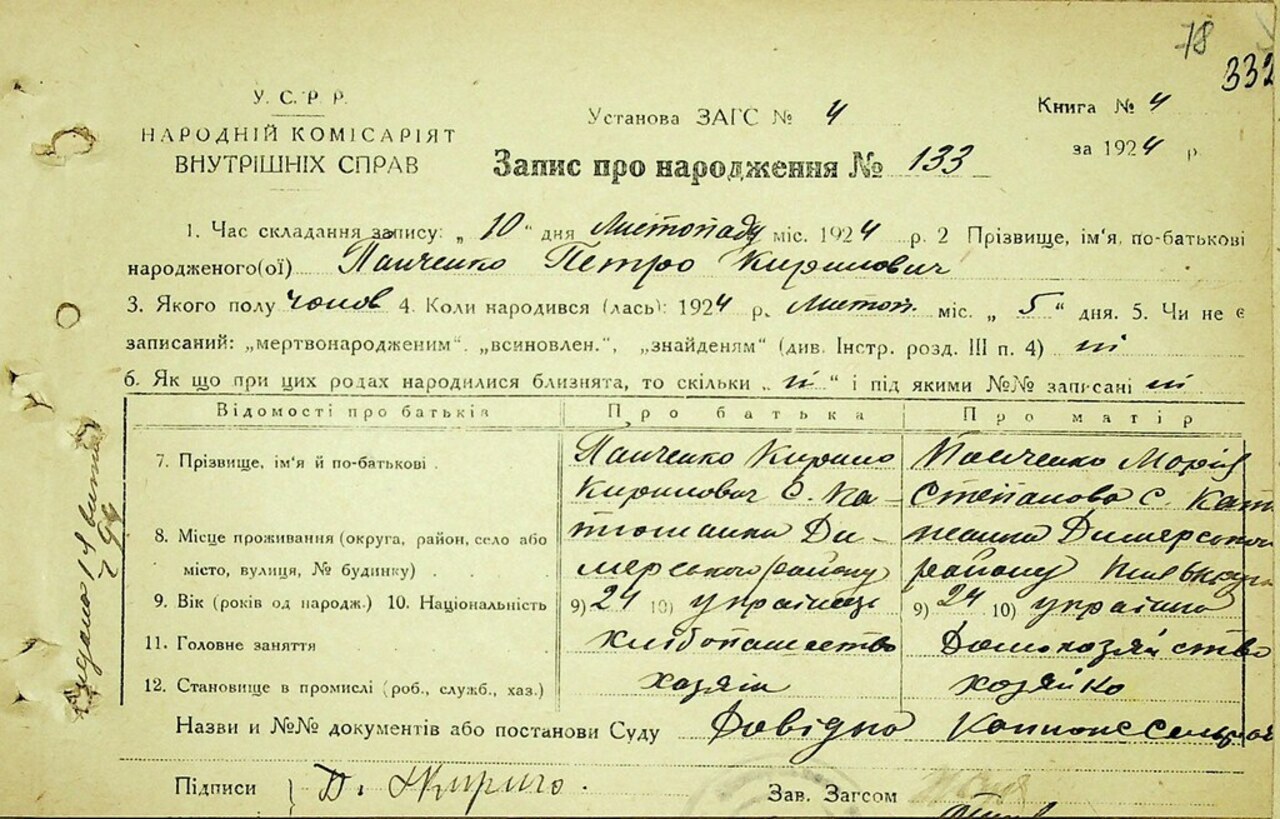 78
332
У. С. Р. Р.
НАРОДНІЙ КОМІСАРІЯТ
ВНУТРІШНІХ СПРАВ
Установа ЗАГС № 4
Книга № 4
за 1924 р.
Запис про народження № 133
1. Час складання запису: „ 10 “ дня Листопаду міс. 1924 р. 2 Прізвище, ім'я, по-батькові
народженого(ої) Панченко Петро Кирилович
3. Якого полу чолов 4. Коли народився (лась): 1924 р. Листоп. міс. „ 5 “ дня. 5. Чи не є
записаний: „мертвонародженим“. „всиновлен.“, „знайденям“ (див. Інстр. розд. III п. 4) ні
6. Як що при цих родах народилися близнята, то скільки „ ні “ і під якими №№ записані ні
Відомості про батьків Про батька Про матір
7. Прізвище, ім'я й по-батькові . Панченко Кирило Панченко Марія
Кирилович с. Ка- Степанова с. Кат
8. Місце проживання (округа, район, село або тюжанка Ди- южанка Димерського
місто, вулиця, № будинку) . . . мерського району району
9. Вік (років од народж.) 10. Національність 9) 24 10) українець 9) 24 10) українка
11. Головне заняття хлібопашество Домохозяйство
12. Становище в промислі (роб., служб., хаз.) хозяін хозяйка
Назви и №№ документів або постанови Суду Довідка
Підписи } П. Кирило.
Зав. Загсом